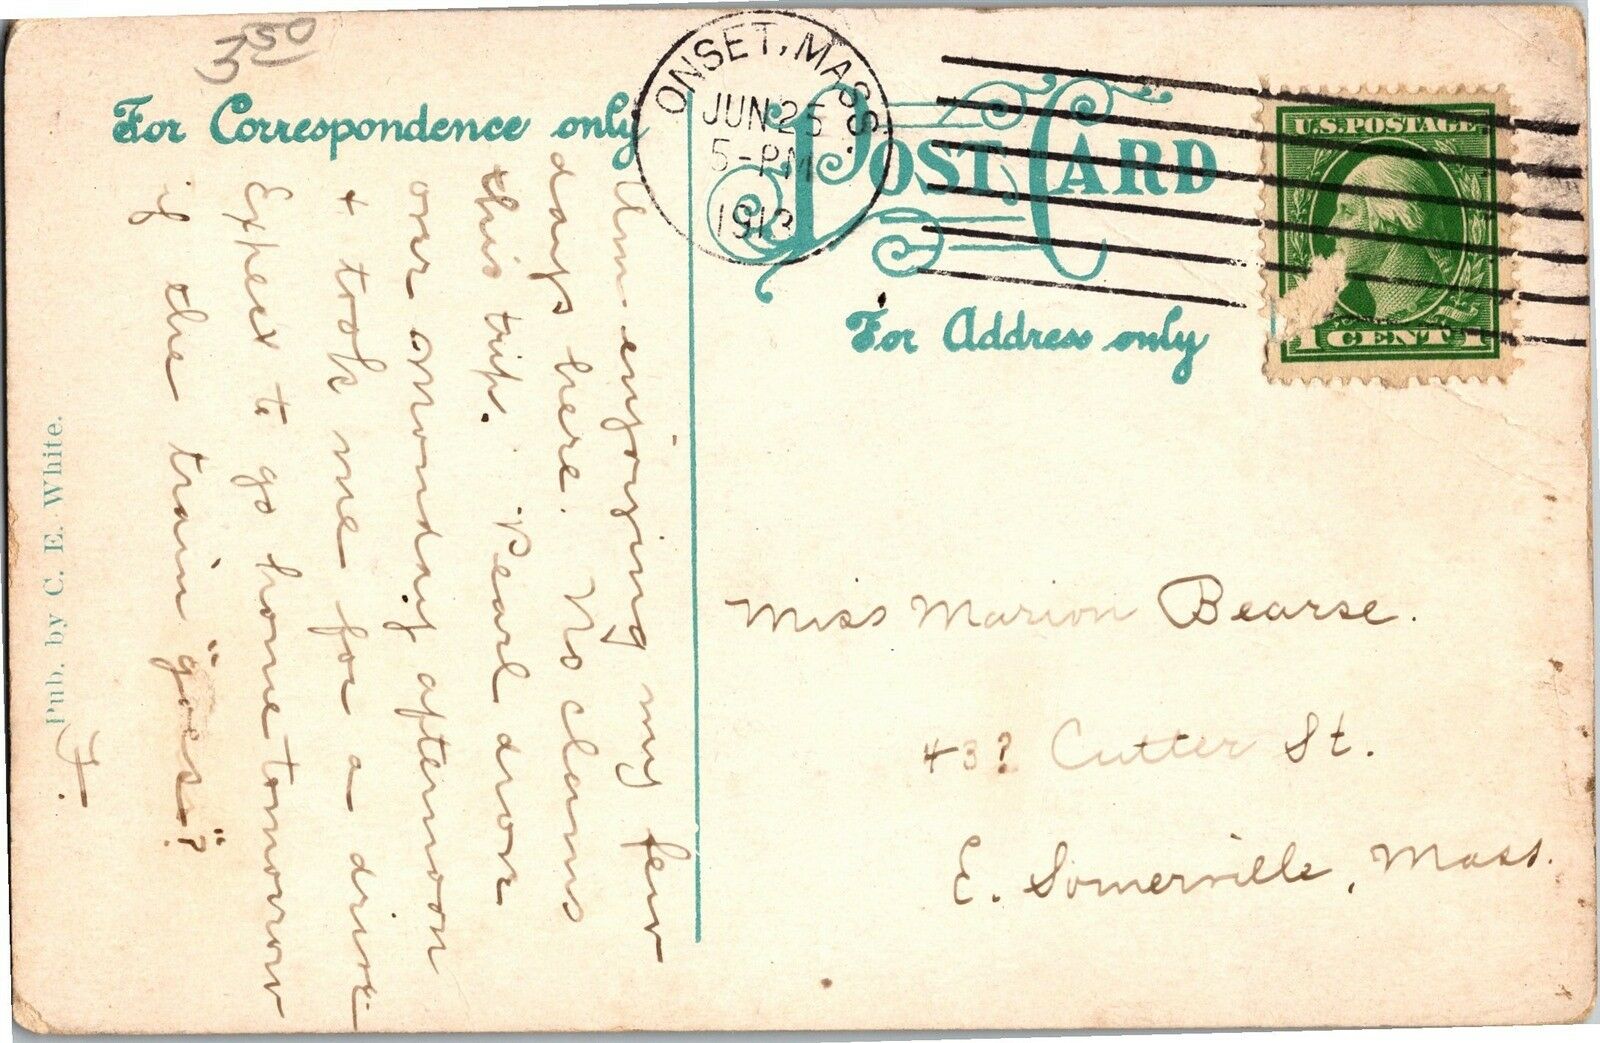 3.50
For Correspondence only
ONSET, MASS.
JUN 25
5-PM
1913
POST CARD
U.S. POSTAGE
1 CENT 1
For Address only
Am enjoying my few
days here. No clams
this trip. Pearl drove
over Monday afternoon
+ took me for a drive.
Expect to go home tomorrow
if the train "goes"?
F.
Miss Marion Bearse.
43? Cutter St.
E. Somerville, Mass.
Pub. by C. E. White.